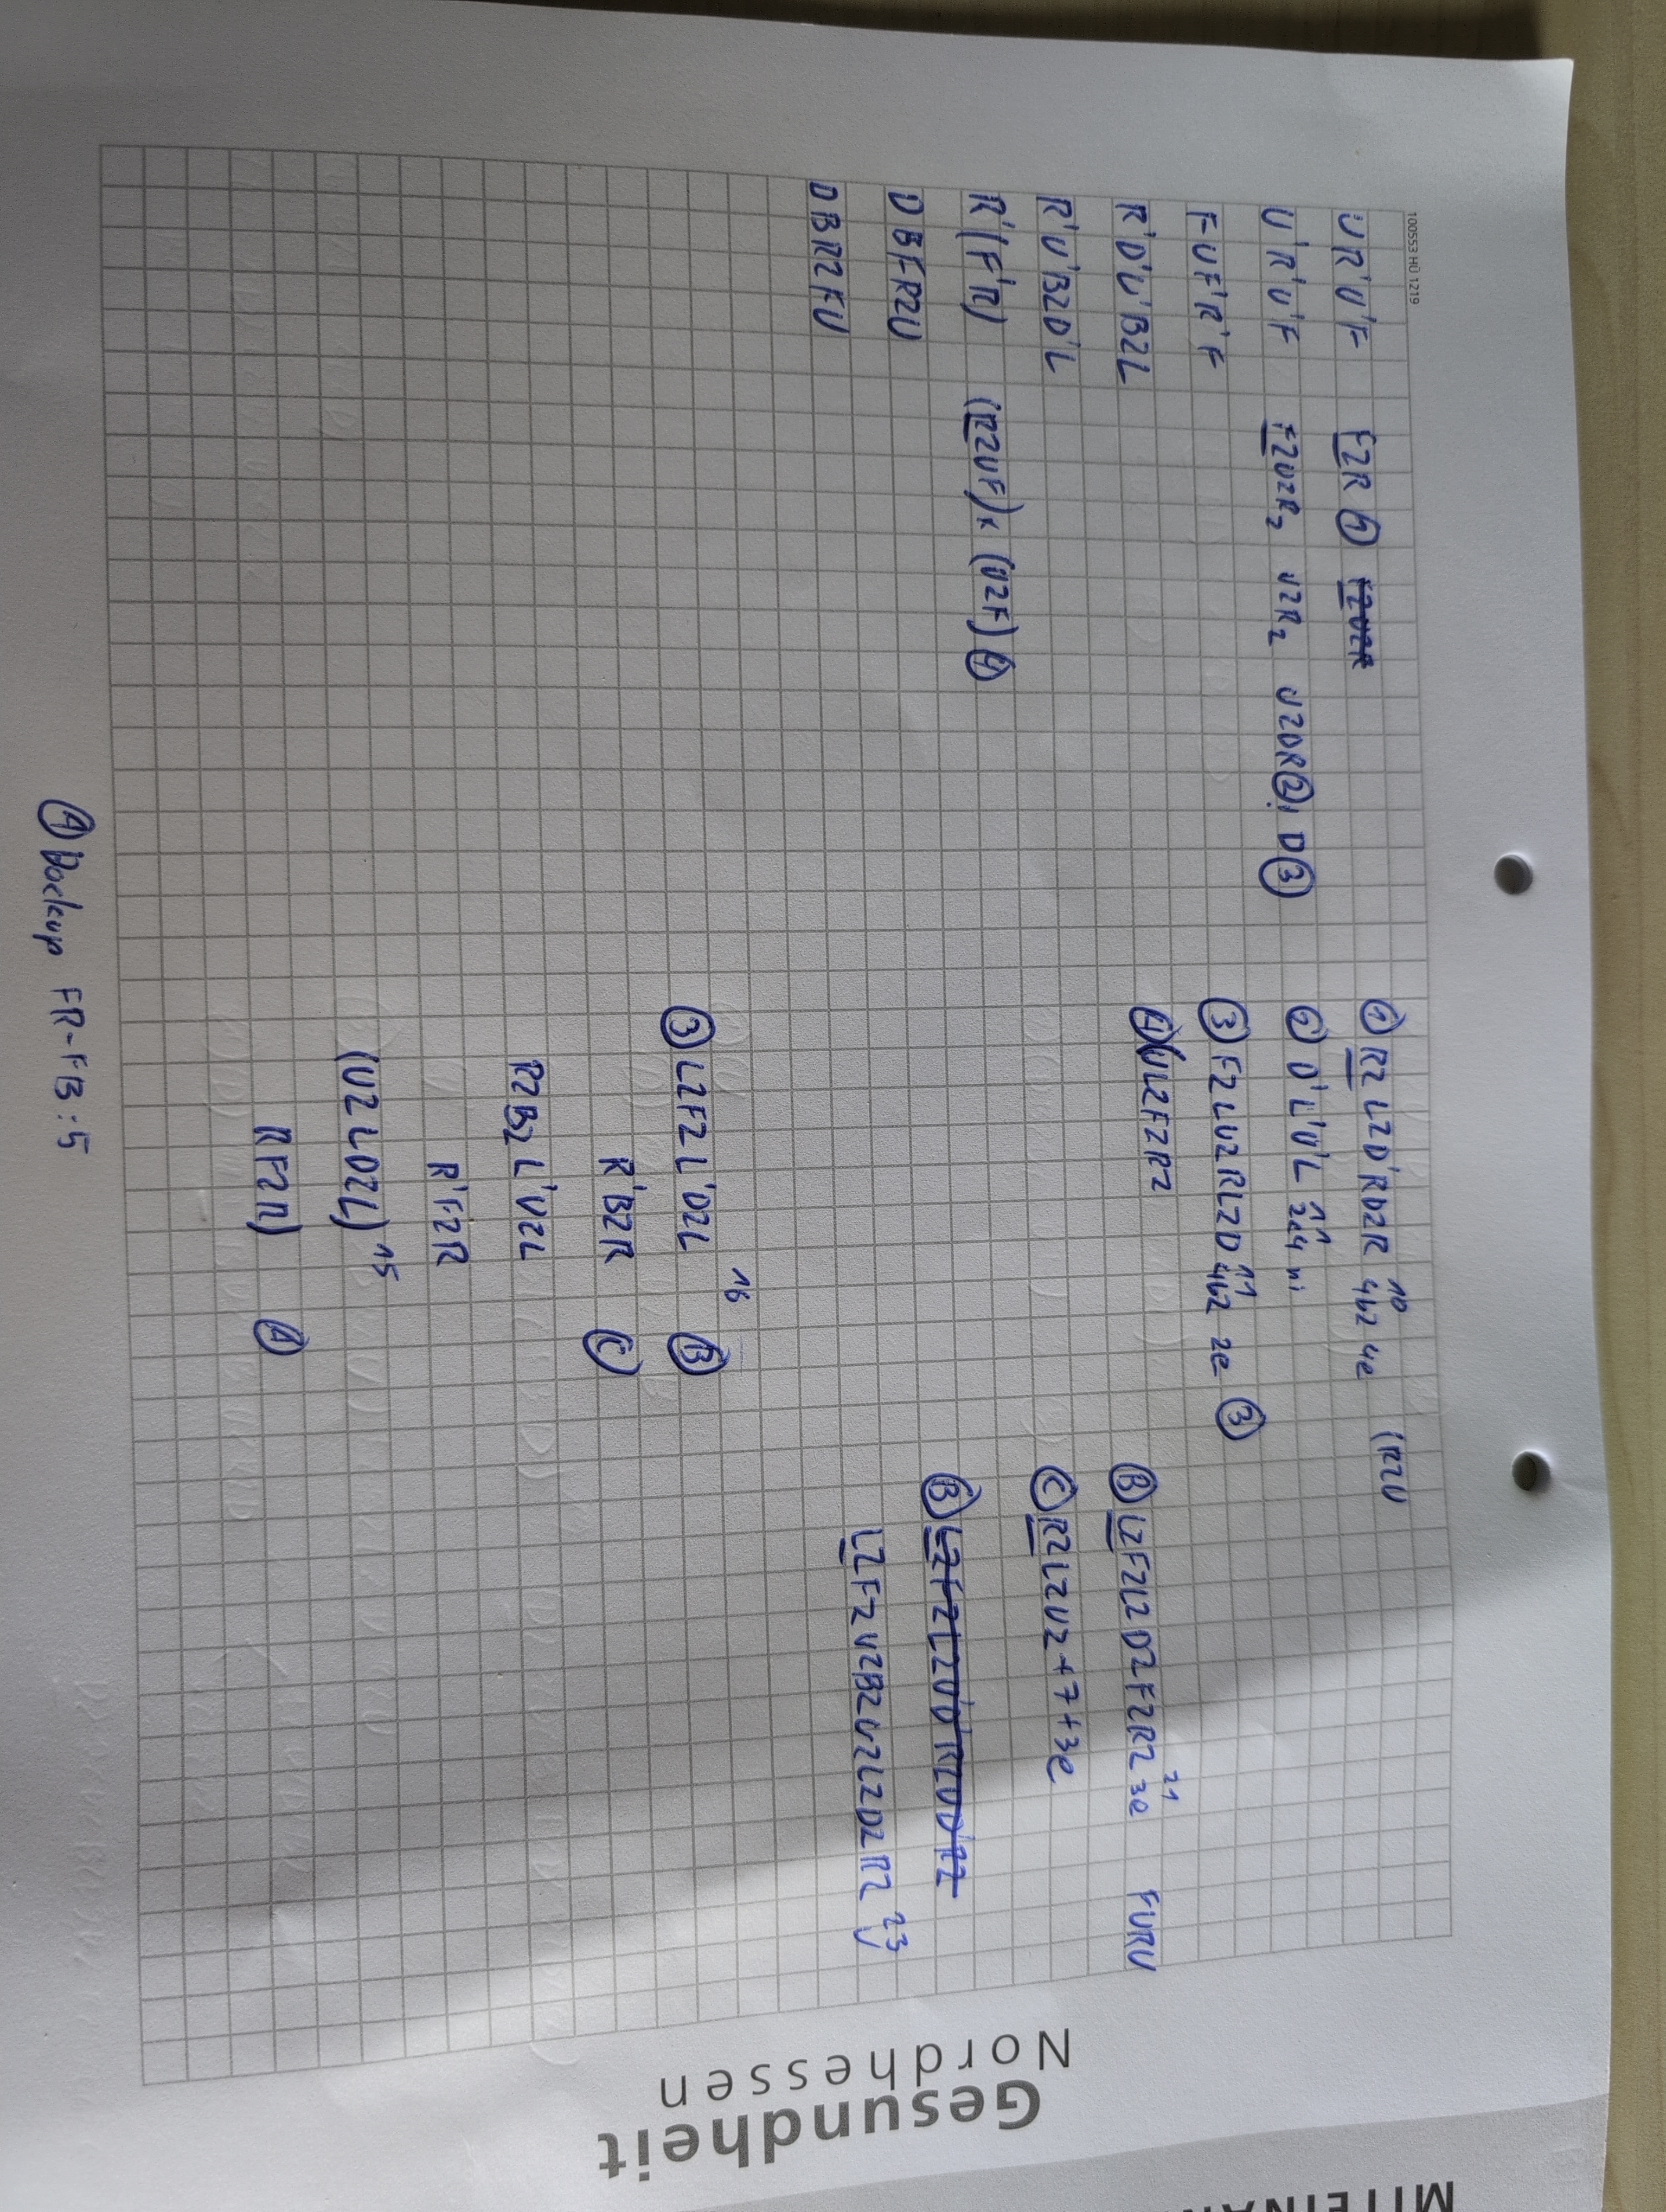 100553 HÜ 1219
UR'U'F F2R ① F2U2R
U'R'U'F F2U2R2 U2R2 U2DR② D③
FUF'R'F
R'D'U'B2L
R'U'B2D'L
R'(F'R) (R2UF)x (U2F)④
DBFR2U
DBR2FU
① R2L2D'RD2R 4b2 4e 10 (R2U
② D'L'U'L 2c4 11
③ F2LU2RL2D 4b2 2e 11 ③
④ UL2F2R2
③ L2F2L'D2L 16 Ⓑ
R'B2R Ⓒ
R2B2L'U2L
R'F2R
(U2LD2L) 15
RF2R) Ⓐ
Ⓑ L2F2L2D2F2R2 3e 21 FURU
Ⓒ R2L2U2+7+3e
Ⓑ L2F2L2
L2F2U2B2U2L2D2R2 23
① Backup FR-FB:5
Gesundheit
Nordhessen